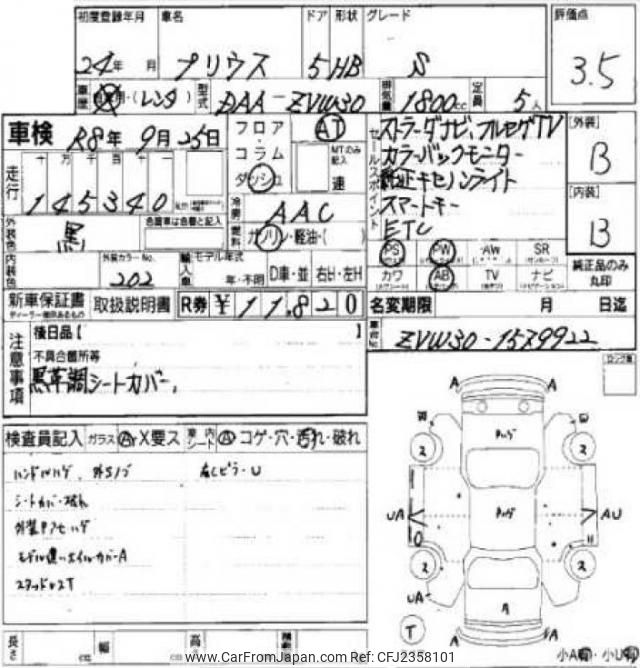 初度登録年月 車名 ドア 形状 グレード 評価点
24年 月 プリウス 5 HB S 3.5
車歴 自家用・(レンタ) 型式 DAA-ZVW30 排気量 1800cc 定員 5人
車検 R8年 9月 25日 フロア・コラム ダッシュ AT MTのみ記入 速
セールスポイント
ストラーダナビ、フルセグTV
カラーバックモニター
純正キセノンライト
スマートキー
ETC
[外装] B
[内装] B
走行 十 万 千 百 十 一
145340
冷房 AAC
燃料 ガソリン・軽油・( )
外装色 黒 色替車は色替と記入
内装色 外装カラーNo. 202
輸入車 モデル年式 年・不明 D車・並 右H・左H
PS PW AW SR
カワ AB TV ナビ
純正品のみ丸印
新車保証書 取扱説明書 R券 ¥11,820
ディーラー捺印あるもの
名変期限 月 日迄
車台No. ZVW30-1579922
注意事項
後日品 [ ]
不具合箇所等
黒革調シートカバー、
検査員記入 ガラス A・X要ス 室内シート A コゲ・穴・汚れ・破れ
ハンドルハゲ、外Sノブ 右Cピラー-U
シートカバー破れ
モデル違いホイルカバーA
スタッドレスT
A A
2 2
UA AU
2 2
UA
A
T A A
長さ cm 幅 cm 高さ
小A有・小U有
www.CarFromJapan.com Ref: CFJ2358101